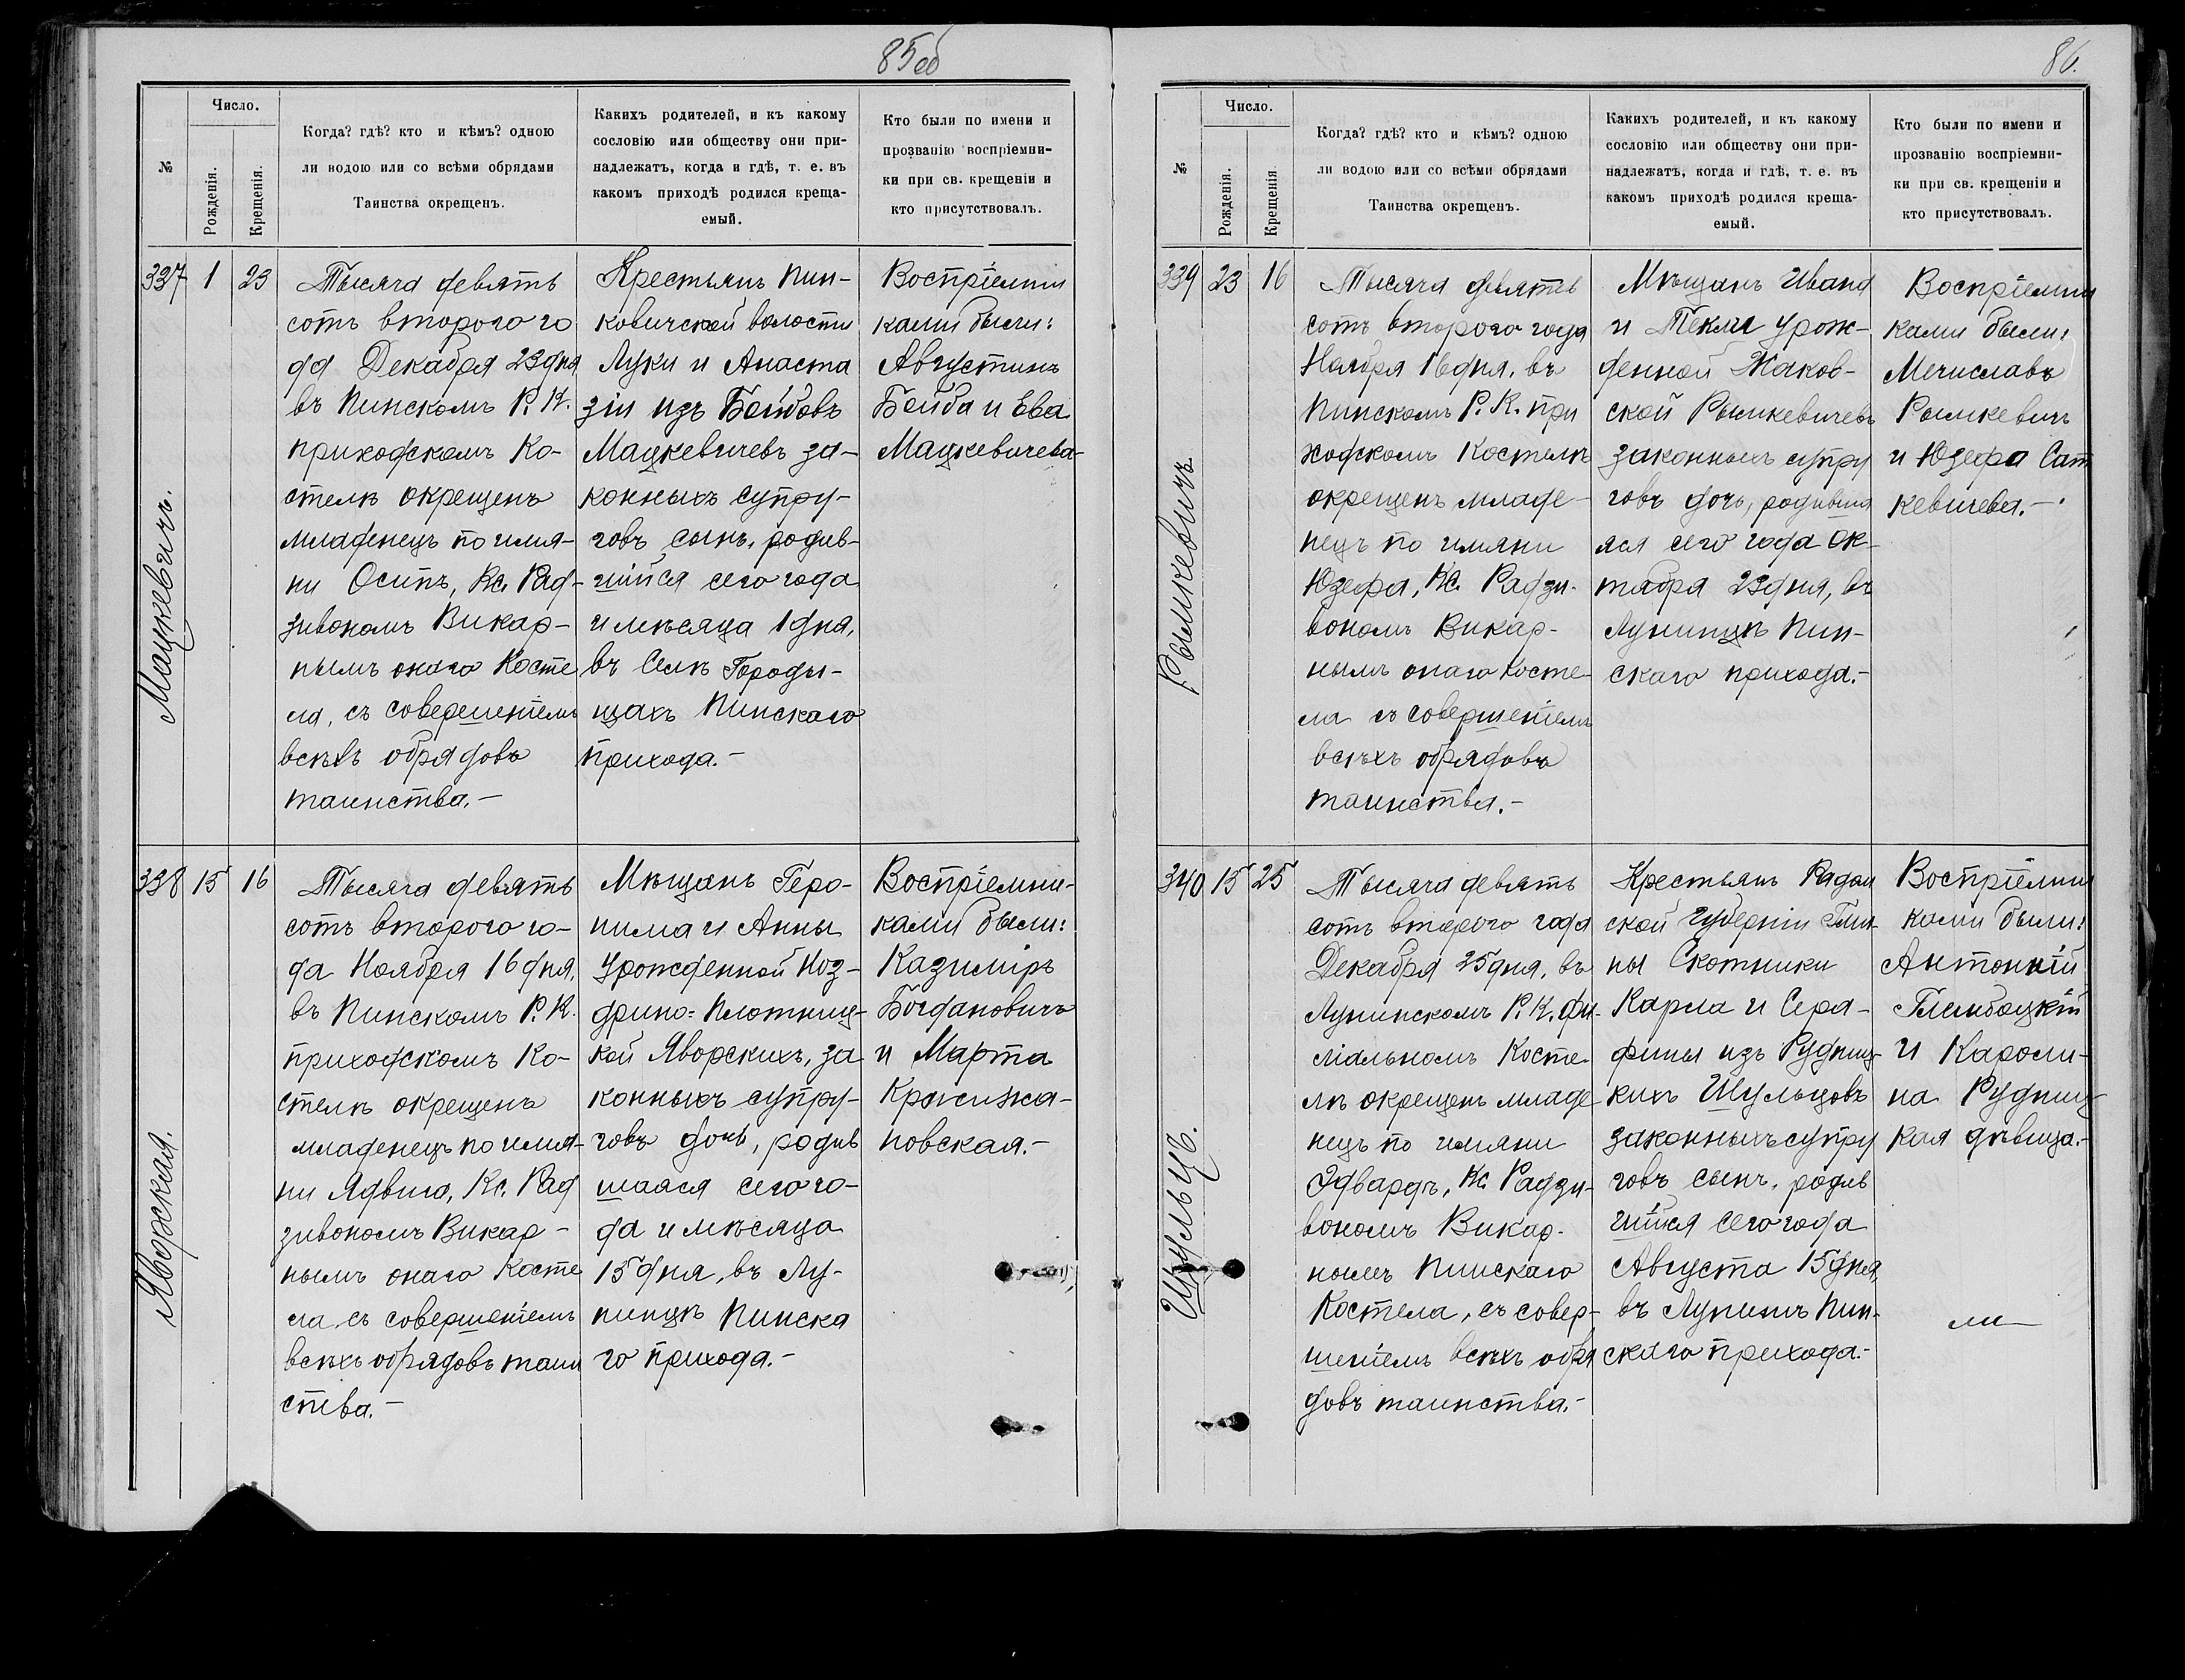 85об
№
Число.
Рожденія.
Крещенія.
Когда? гдѣ? кто и кѣмъ? одною
ли водою или со всѣми обрядами
Таинства окрещенъ.
Какихъ родителей, и къ какому
сословію или обществу они при-
надлежатъ, когда и гдѣ, т. е. въ
какомъ приходѣ родился креща-
емый.
Кто были по имени и
прозванію воспріемни-
ки при св. крещеніи и
кто присутствовалъ.
337
1
23
Мацкевичъ.
Тысяча девять
сотъ второго го
да Декабря 23 дня
въ Пинскомъ Р. К.
приходскомъ Ко-
стелѣ окрещенъ
младенецъ по имя-
ни Осипъ, Кс. Рад-
зивономъ Викар-
нымъ онаго Косте
ла, съ совершеніемъ
всѣхъ обрядовъ
таинства.-
Крестьянъ Пин-
ковичской волости
Луки и Анаста
зіи изъ Бейдовъ
Мацкевичевъ за-
конныхъ супру-
говъ сынъ, родив-
шійся сего года
и мѣсяца 1 дня,
въ Селѣ Городи-
щахъ Пинскаго
прихода.-
Воспріемни
ками были:
Августинъ
Бейда и Ева
Мацкевичева-
338
15
16
Яворская.
Тысяча девять
сотъ второго го-
да Ноября 16 дня,
въ Пинскомъ Р. К.
приходскомъ Ко-
стелѣ окрещенъ
младенецъ по имя-
ни Ядвига, Кс. Рад
зивономъ Викар-
нымъ онаго Косте
ла, съ совершеніемъ
всѣхъ обрядовъ таин
ства.-
Мѣщанъ Геро-
нима и Анны
Урожденной Ноз-
дрино-Плотниц-
кой Яворскихъ, за
конныхъ супру-
говъ дочь, родив
шаяся сего го-
да и мѣсяца
15 дня, въ Лу-
нинцѣ Пинска
го прихода.-
Воспріемни-
ками были:
Казиміръ
Богдановичъ
и Марта
Кржижа-
новская.-
86.
№
Число.
Рожденія.
Крещенія.
Когда? гдѣ? кто и кѣмъ? одною
ли водою или со всѣми обрядами
Таинства окрещенъ.
Какихъ родителей, и къ какому
сословію или обществу они при-
надлежатъ, когда и гдѣ, т. е. въ
какомъ приходѣ родился креща-
емый.
Кто были по имени и
прозванію воспріемни-
ки при св. крещеніи и
кто присутствовалъ.
339
23
16
Рымкевичъ
Тысяча девять
сотъ второго года
Ноября 16 дня, въ
Пинскомъ Р. К. при
ходскомъ Костелѣ
окрещенъ младе-
нецъ по имяни
Юзефа, Кс. Радзи-
вономъ Викар-
нымъ онаго Косте-
ла съ совершеніемъ
всѣхъ обрядовъ
таинства.-
Мѣщанъ Ивана
и Текли урож-
денной Жаков-
ской Рымкевичевъ
законныхъ супру
говъ дочь, родивша
яся сего года Ок-
тября 23 дня, въ
Лунинцѣ Пин-
скаго прихода.-
Воспріемни
ками были:
Мечиславъ
Рымкевичъ
и Юзефа Сат
кевичева.-
340
15
25
Шульцъ.
Тысяча девять
сотъ второго года
Декабря 25 дня, въ
Лунинскомъ Р. К. фи-
ліальномъ Косте-
лѣ окрещенъ младе
нецъ по имяни
Эдвардъ, Кс. Радзи-
вономъ Викар-
нымъ Пинскаго
Костела, съ совер-
шеніемъ всѣхъ обря
довъ таинства.-
Крестьянъ Радом
ской Губерніи Гми-
ны Скотники
Карла и Сера-
фины изъ Рудниц-
кихъ Шульцовъ
законныхъ супру
говъ сынъ, родив
шійся сего года
Августа 15 дня,
въ Лунинѣ Пин-
скаго прихода.-
Воспріемни
ками были:
Антоній
Глембоцкій
и Кароли-
на Рудниц-
кая дѣвица.-